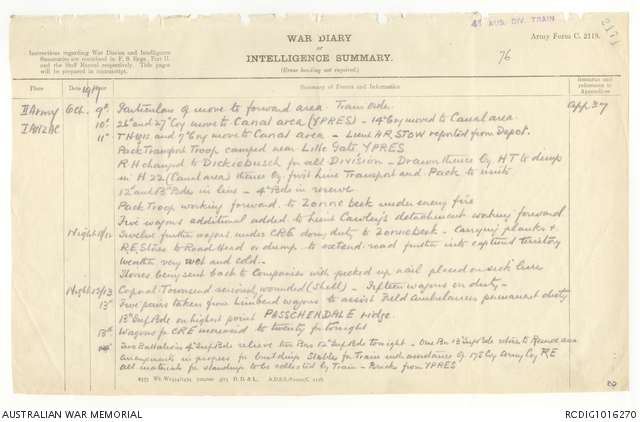 4th AUS. DIV. TRAIN
2171
WAR DIARY
or
INTELLIGENCE SUMMARY.
(Erase heading not required.)
Army Form C. 2118.
76
Instructions regarding War Diaries and Intelligence
Summaries are contained in F. S. Regs., Part II.
and the Staff Manual respectively. Title pages
will be prepared in manuscript.
Place Date Hour Summary of Events and Information Remarks and references to Appendices
1917
II Army Oct. 9th Particulars of move to forward area. Train order. App 37
I ANZAC 10th 26th and 27th Coy move to Canal area (YPRES) - 14th Coy moved to Canal area.
11th THQrs and 7th Coy move to Canal area - Lieut AR. STOW reported from Depot.
Pack Transport Troop camped near Lille Gate YPRES
RH changed to Dickiebusch for all Division - Drawn thence by HT to dump
in H.22 (Canal area) thence by first line Transport and Pack to units
12th and 13th Bdes in line - 4th Bde in reserve
Pack Troop working forward to Zonnebeek under enemy fire
Five wagons additional added to Lieut Cawley's detachment working forward
Night 11/12 Twelve further wagons under CRE doing duty to Zonnebeek - carrying planks &
RE Stores to Road Head or dump to extend road further into captured territory
Weather very wet and cold.
Horses being sent back to Companies with picked up nail placed on sick lines
Night 12/13 Corporal Townsend serious wounded (Shell) - Fifteen wagons on duty -
13th Five pairs taken from limbered wagons to assist Field Ambulances permanent duty
13th Inf Bde on highest point PASSCHENDALE ridge.
13th Wagons for CRE increased to twenty for tonight
Two Battalions 4th Inf Bde relieve two Bns 12th Inf Bde tonight - One Bn 13th Inf Bde return to Reserve area
Arrangements in progress for building Stables for Train under Coy Army Coy RE
all materials for standings to be collected by Train - Bricks from YPRES
2
AUSTRALIAN WAR MEMORIAL
RCDIG1016270